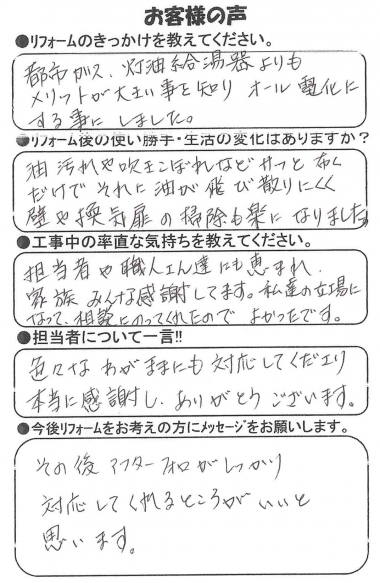 お客様の声
●リフォームのきっかけを教えてください。
都市ガス、灯油給湯器よりも
メリットが大きい事を知り オール電化に
する事に しました。
●リフォーム後の使い勝手・生活の変化はありますか?
油汚れや吹きこぼれなど サッと ふく
だけで それに 油が 飛び散りにくく
壁や換気扉の掃除も楽に なりました。
●工事中の率直な気持ちを教えてください。
担当者や職人さん達にも恵まれ、
家族 みんな感謝してます。私達の立場に
なって、相談にのってくれたので よかったです。
●担当者について一言!!
色々な わがままにも 対応してくださり
本当に感謝し、ありがとう ございます。
●今後リフォームをお考えの方にメッセージをお願いします。
その後 アフターフォローが しっかり
対応してくれるところが いいと
思います。